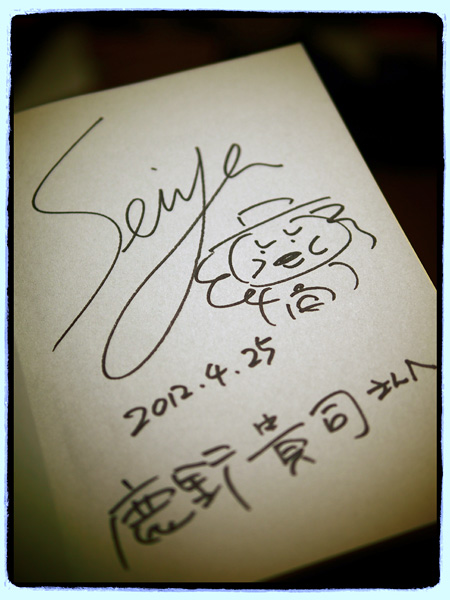 Seiya
2012.4.25
鹿野貴司さんへ